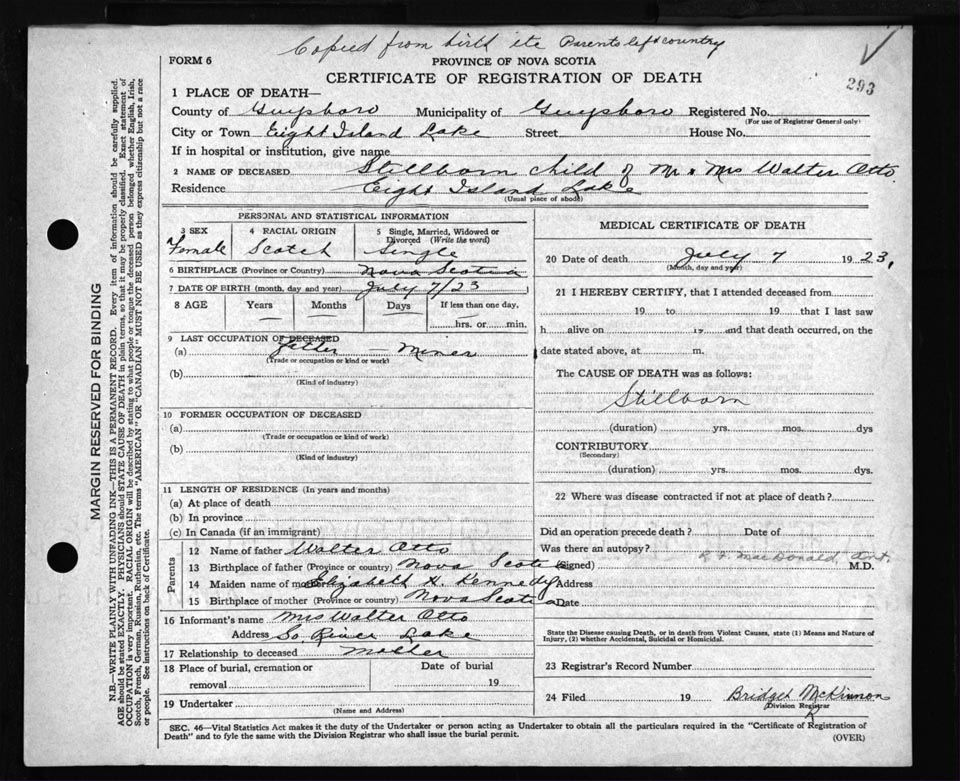 Copied from birth ite Parents left country
FORM 6
PROVINCE OF NOVA SCOTIA
CERTIFICATE OF REGISTRATION OF DEATH
293
1 PLACE OF DEATH—
County of Guysboro Municipality of Guysboro Registered No.
(For use of Registrar General only)
City or Town Eight Island Lake Street House No.
If in hospital or institution, give name
2 NAME OF DECEASED Stillborn child of Mr & Mrs Walter Otto
Residence Eight Island Lake
(Usual place of abode)
PERSONAL AND STATISTICAL INFORMATION
3 SEX 4 RACIAL ORIGIN 5 Single, Married, Widowed or Divorced (Write the word)
Female Scotch Single
6 BIRTHPLACE (Province or Country) Nova Scotia
7 DATE OF BIRTH (month, day and year) July 7/23
8 AGE Years Months Days If less than one day,
— — — hrs. or min.
9 LAST OCCUPATION OF DECEASED
(a) father — Miner
(Trade or occupation or kind of work)
(b)
(Kind of industry)
10 FORMER OCCUPATION OF DECEASED
(a)
(Trade or occupation or kind of work)
(b)
(Kind of industry)
11 LENGTH OF RESIDENCE (In years and months)
(a) At place of death
(b) In province
(c) In Canada (if an immigrant)
Parents
12 Name of father Walter Otto
13 Birthplace of father (Province or country) Nova Scotia
14 Maiden name of mother Elizabeth H. Kennedy
15 Birthplace of mother (Province or country) Nova Scotia
16 Informant's name Mrs Walter Otto
Address So. River Lake
17 Relationship to deceased Mother
18 Place of burial, cremation or removal Date of burial 19
19 Undertaker
(Name and Address)
MEDICAL CERTIFICATE OF DEATH
20 Date of death July 7 1923,
(Month, day and year)
21 I HEREBY CERTIFY, that I attended deceased from
19 to 19 that I last saw
h alive on 19 and that death occurred, on the
date stated above, at m.
The CAUSE OF DEATH was as follows:
Stillborn
(duration) yrs. mos. dys
CONTRIBUTORY
(Secondary)
(duration) yrs. mos. dys.
22 Where was disease contracted if not at place of death?
Did an operation precede death? Date of
Was there an autopsy?
(Signed) MacDonald M.D.
Address
Date
State the Disease causing Death, or in death from Violent Causes, state (1) Means and Nature of
Injury, (2) whether Accidental, Suicidal or Homicidal.
23 Registrar's Record Number
24 Filed 19 Bridget McKinnon
Division Registrar
SEC. 46—Vital Statistics Act makes it the duty of the Undertaker or person acting as Undertaker to obtain all the particulars required in the "Certificate of Registration of
Death" and to fyle the same with the Division Registrar who shall issue the burial permit.
(OVER)
MARGIN RESERVED FOR BINDING
N.B.—WRITE PLAINLY WITH UNFADING INK—THIS IS A PERMANENT RECORD. Every item of information should be carefully supplied.
AGE should be stated EXACTLY. PHYSICIANS should STATE CAUSE OF DEATH in plain terms, so that it may be properly classified. Exact statement of
OCCUPATION is very important. RACIAL ORIGIN will be described by stating to what people or tongue the deceased person belonged whether English, Irish,
Scotch, French, German, Russian, Ruthenian, etc. The terms "AMERICAN" OR "CANADIAN" MUST NOT BE USED as they express citizenship but not a race
or people. See instructions on back of Certificate.